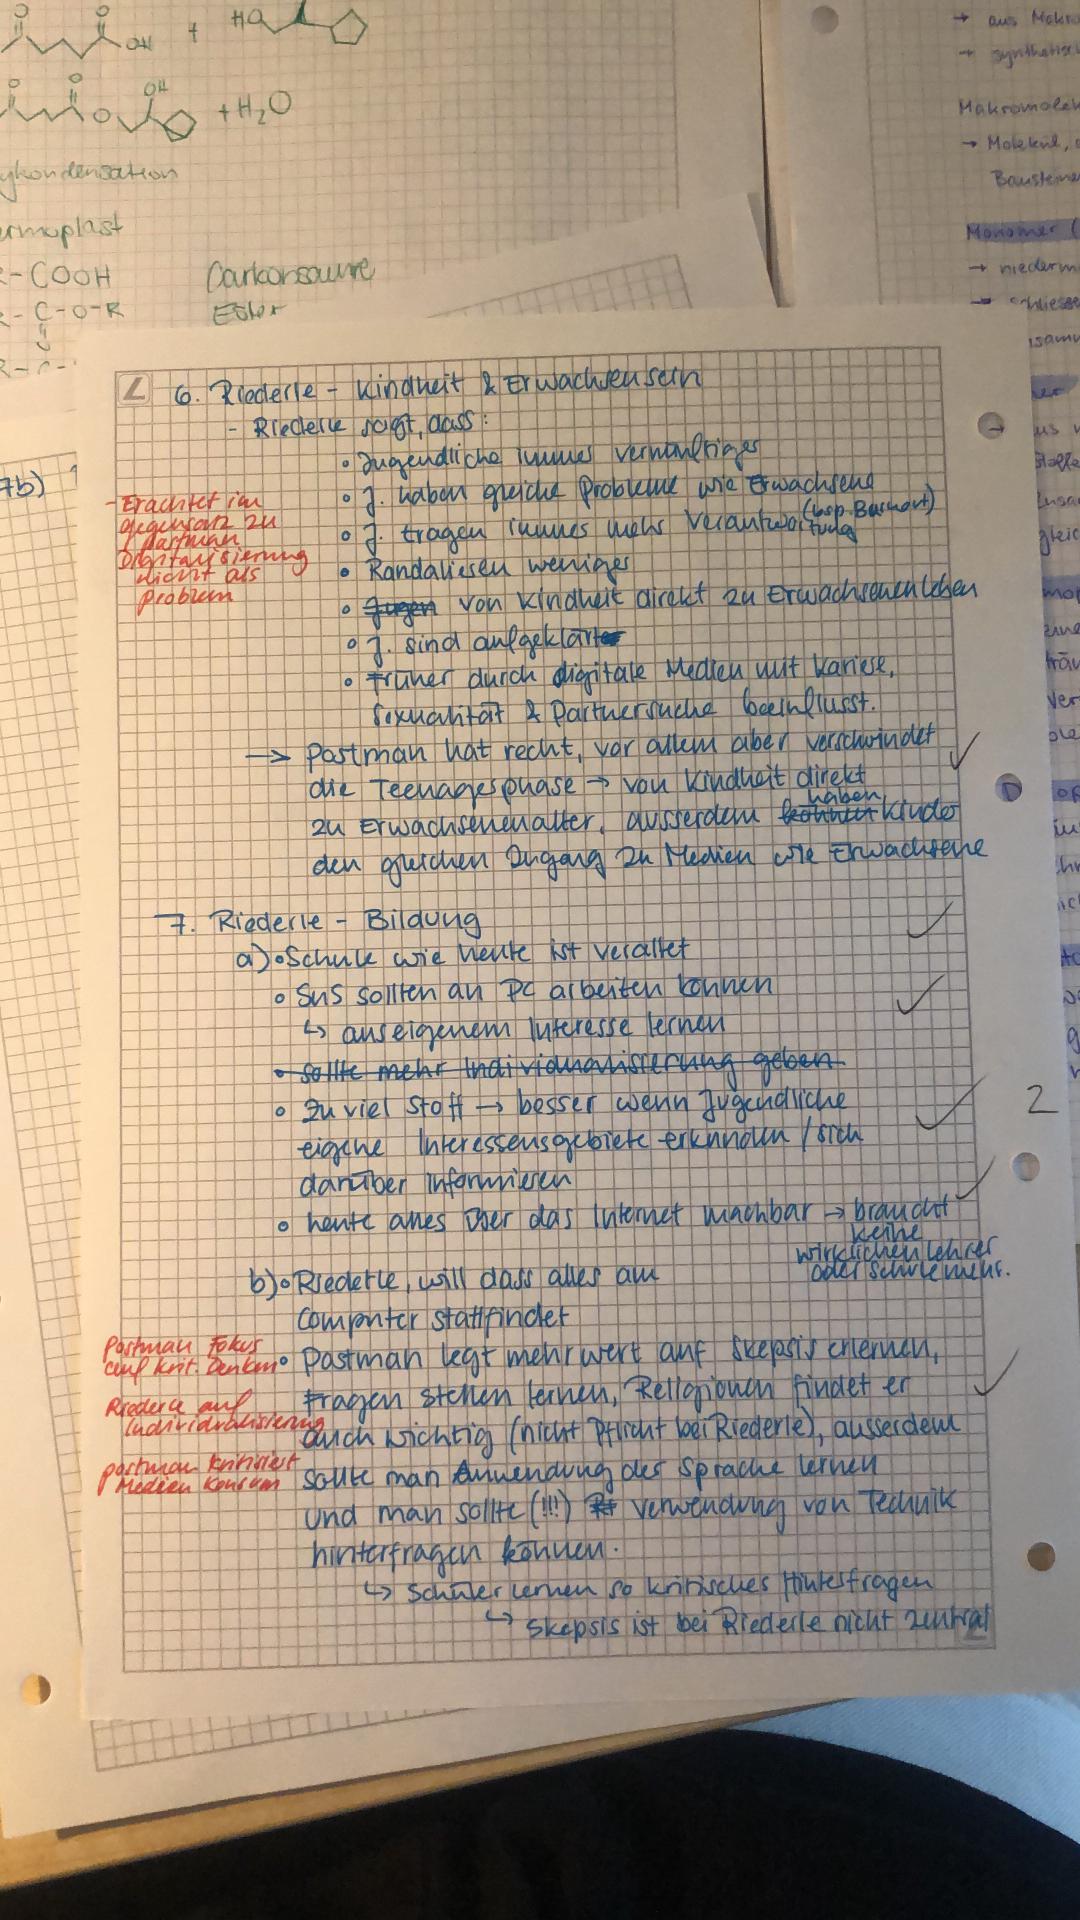 HO
OH
+
OH
O
+ H₂O
ykondensation
ermoplast
R-COOH
Carbonsäure
R-C-O-R
Ester
7b)
→ aus Makro
→ synthetisch
Makromolek
→ Molekül,
Bausteine
Monomer (
→ niederm
6. Riederle - Kindheit & Erwachsensein
- Riederle sagt, dass:
• Jugendliche immer vernünftiger
• J. haben gleiche Probleme wie Erwachsene
• J. tragen immer mehr Verantwortung (bsp. Burnout)
• Randalieren weniger
• Jugen von Kindheit direkt zu Erwachsenenleben
• J. sind aufgeklärt
• früher durch digitale Medien mit Kariere,
Sexualität & Partnersuche beeinflusst.
- Erachtet im
gegensatz zu
Postman
Digitalisierung
nicht als
problem
→ Postman hat recht, vor allem aber verschwindet
die Teenagerphase → von Kindheit direkt
zu Erwachsenenalter, ausserdem haben Kinder
den gleichen Zugang zu Medien wie Erwachsene
7. Riederle - Bildung
a) • Schule wie heute ist veraltet
• SuS sollten an PC arbeiten können
↳ aus eigenem Interesse lernen
• sollte mehr Individualisierung geben
• zu viel Stoff → besser wenn Jugendliche
eigene Interessensgebiete erkunden / sich
darüber informieren
2
• heute alles über das Internet machbar → braucht
keine
wirklichen Lehrer
oder Schule mehr.
b) • Riederle, will dass alles am
Computer stattfindet
• Postman legt mehr wert auf Skepsis erlernen,
Fragen stellen lernen, Religionen findet er
auch wichtig (nicht Pflicht bei Riederle), ausserdem
sollte man Anwendung der Sprache lernen
und man sollte (!!!) verwendung von Technik
hinterfragen können.
↳ Schüler lernen so kritisches Hinterfragen
↳ Skepsis ist bei Riederle nicht zentral
Postman Fokus
auf krit. Denken
Riederle auf
Individualisierung
postman kritisiert
Medien Konsum